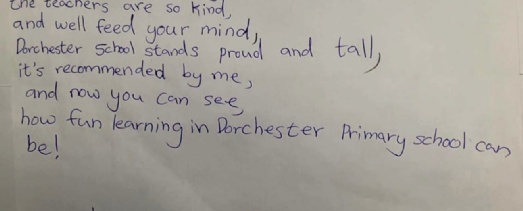 the teachers are so kind,
and well feed your mind,
Dorchester School stands proud and tall,
it's recommended by me,
and now you can see,
how fun learning in Dorchester Primary school can
be!